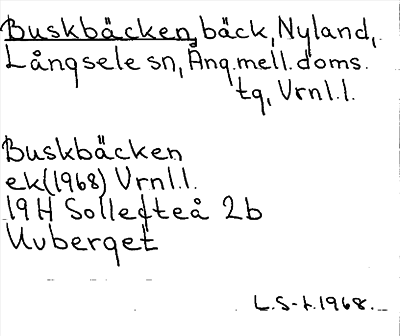 Buskbäcken, bäck, Nyland,
Långsele sn, Ång.mell.doms.
tg, Vrnl.l.
Buskbäcken
ek(1968) Vrnl.l.
19H Sollefteå 2b
Uvberget
L.S-t.1968.